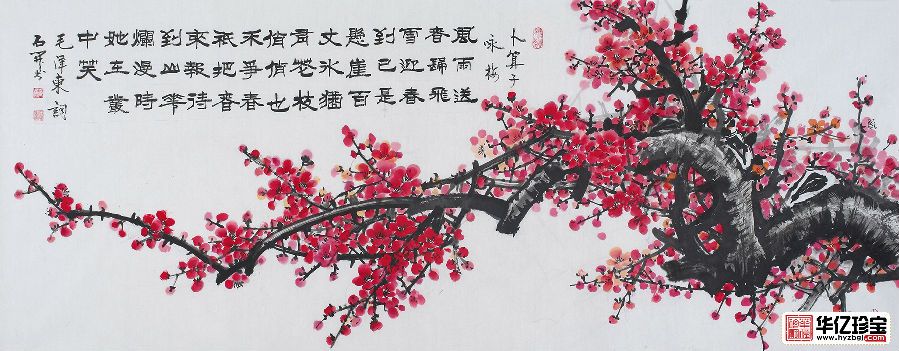 卜算子
咏梅
風雨送
春歸飛
雪迎春
到已是
懸崖百
丈冰猶
有花枝
俏俏也
不爭春
祇把春
來報待
到山華
爛漫時
她在叢
中笑
毛澤東詞
华亿珍宝
www.hyzbgl.com